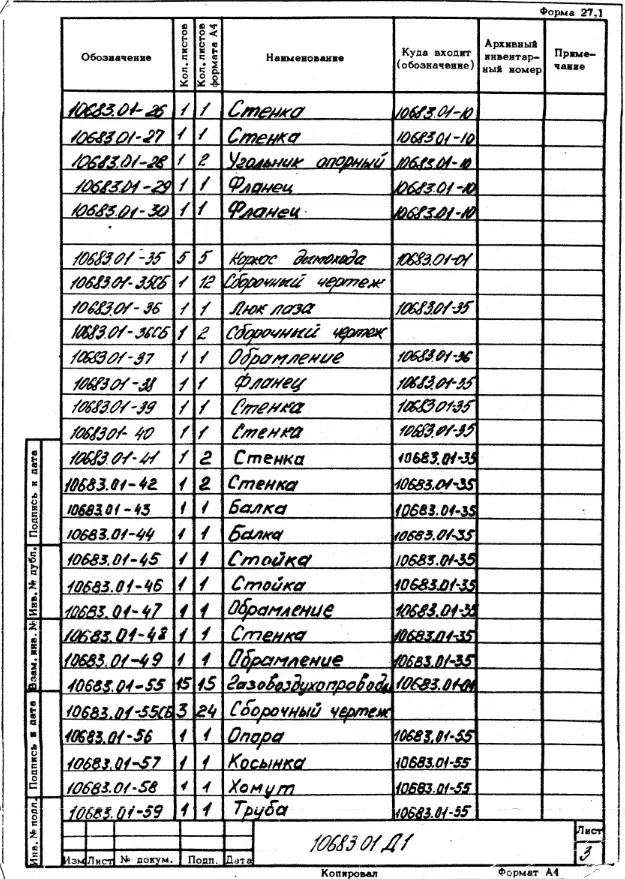 Форма 27,1
Обозначение Кол. листов Кол. листов формата А4 Наименование Куда входит (обозначение) Архивный инвентарный номер Примечание
10683.01-26 1 1 Стенка 10683.01-10
10683.01-27 1 1 Стенка 10683.01-10
10683.01-28 1 2 Угольник опорный 10683.01-10
10683.01-29 1 1 Фланец 10683.01-10
10683.01-30 1 1 Фланец 10683.01-10
10683.01-35 5 5 Каркас дымохода 10683.01-01
10683.01-35СБ 1 12 Сборочный чертеж
10683.01-36 1 1 Люк лаза 10683.01-35
10683.01-36СБ 1 2 Сборочный чертеж
10683.01-37 1 1 Обрамление 10683.01-36
10683.01-38 1 1 Фланец 10683.01-35
10683.01-39 1 1 Стенка 10683.01-35
10683.01-40 1 1 Стенка 10683.01-35
10683.01-41 1 2 Стенка 10683.01-35
10683.01-42 1 2 Стенка 10683.01-35
10683.01-43 1 1 Балка 10683.01-35
10683.01-44 1 1 Балка 10683.01-35
10683.01-45 1 1 Стойка 10683.01-35
10683.01-46 1 1 Стойка 10683.01-35
10683.01-47 1 1 Обрамление 10683.01-35
10683.01-48 1 1 Стенка 10683.01-35
10683.01-49 1 1 Обрамление 10683.01-35
10683.01-55 15 15 Газовоздухопроводы 10683.01-01
10683.01-55СБ 3 24 Сборочный чертеж
10683.01-56 1 1 Опора 10683.01-55
10683.01-57 1 1 Косынка 10683.01-55
10683.01-58 1 1 Хомут 10683.01-55
10683.01-59 1 1 Труба 10683.01-55
Подпись и дата
Инв. № дубл.
Взам. инв. №
Подпись и дата
Инв. № подл.
Изм Лист № докум. Подп. Дата
10683.01 Д1
Лист
3
Копировал Формат А4